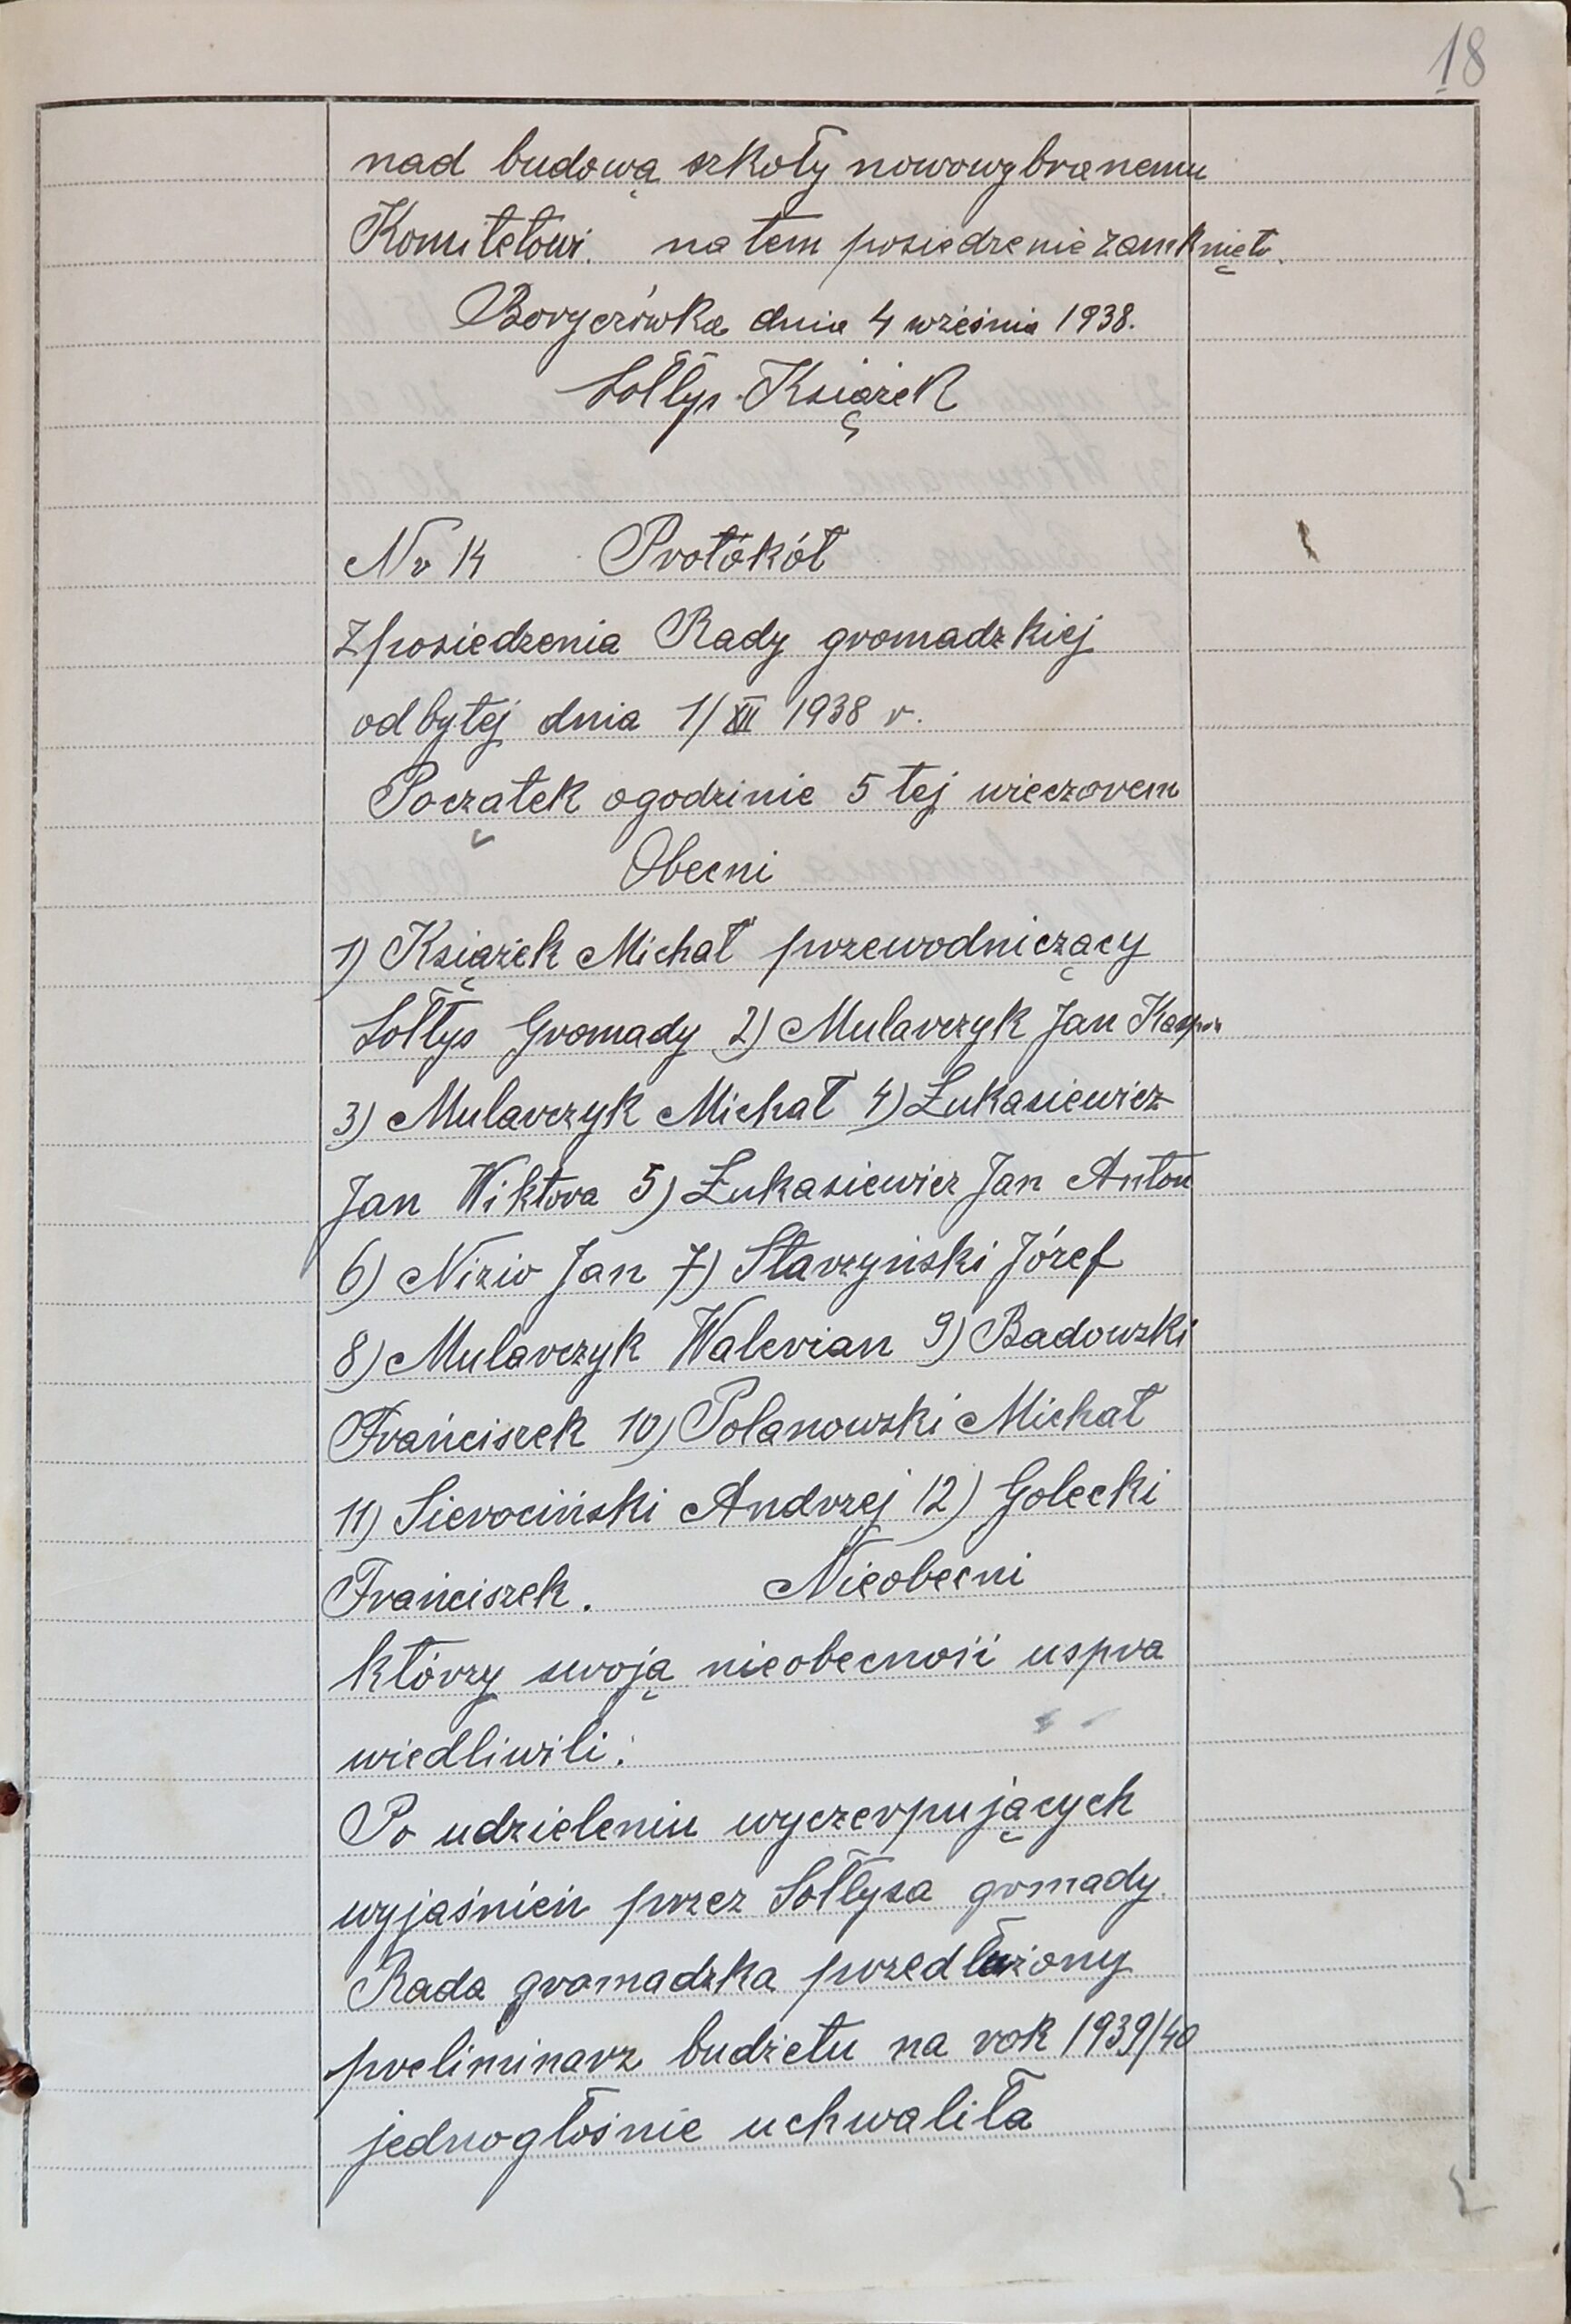 18
nad budową szkoły nowowybranemu
Komitetowi. na tem posiedzenie zamknięto.
Boryczówka dnia 4 wrieśnia 1938.
Sołtys Książek
Nr 14 Protókół
Zposiedzenia Rady gromadzkiej
odbytej dnia 1/XII 1938 r.
Początek ogodzinie 5 tej wieczorem
Obecni
1) Książek Michał przewodniczący
Sołtys Gromady 2) Mularczyk Jan
3) Mularczyk Michał 4) Łukasiewicz
Jan Wiktora 5) Łukasiewicz Jan Anton
6) Nizio Jan 7) Starzyński Józef
8) Mularczyk Walerian 9) Badowski
Frańciszek 10) Polanowski Michał
11) Sierociński Andrzej 12) Golecki
Frańciszek. Nieobecni
którzy swoją nieobecność uspra
wiedliwili:
Po udzieleniu wyczerpujących
wyjaśnień przez Sołtysa gromady
Rada gromadzka przedłużony
preliminarz budżetu na rok 1939/40
jednogłośnie uchwaliła